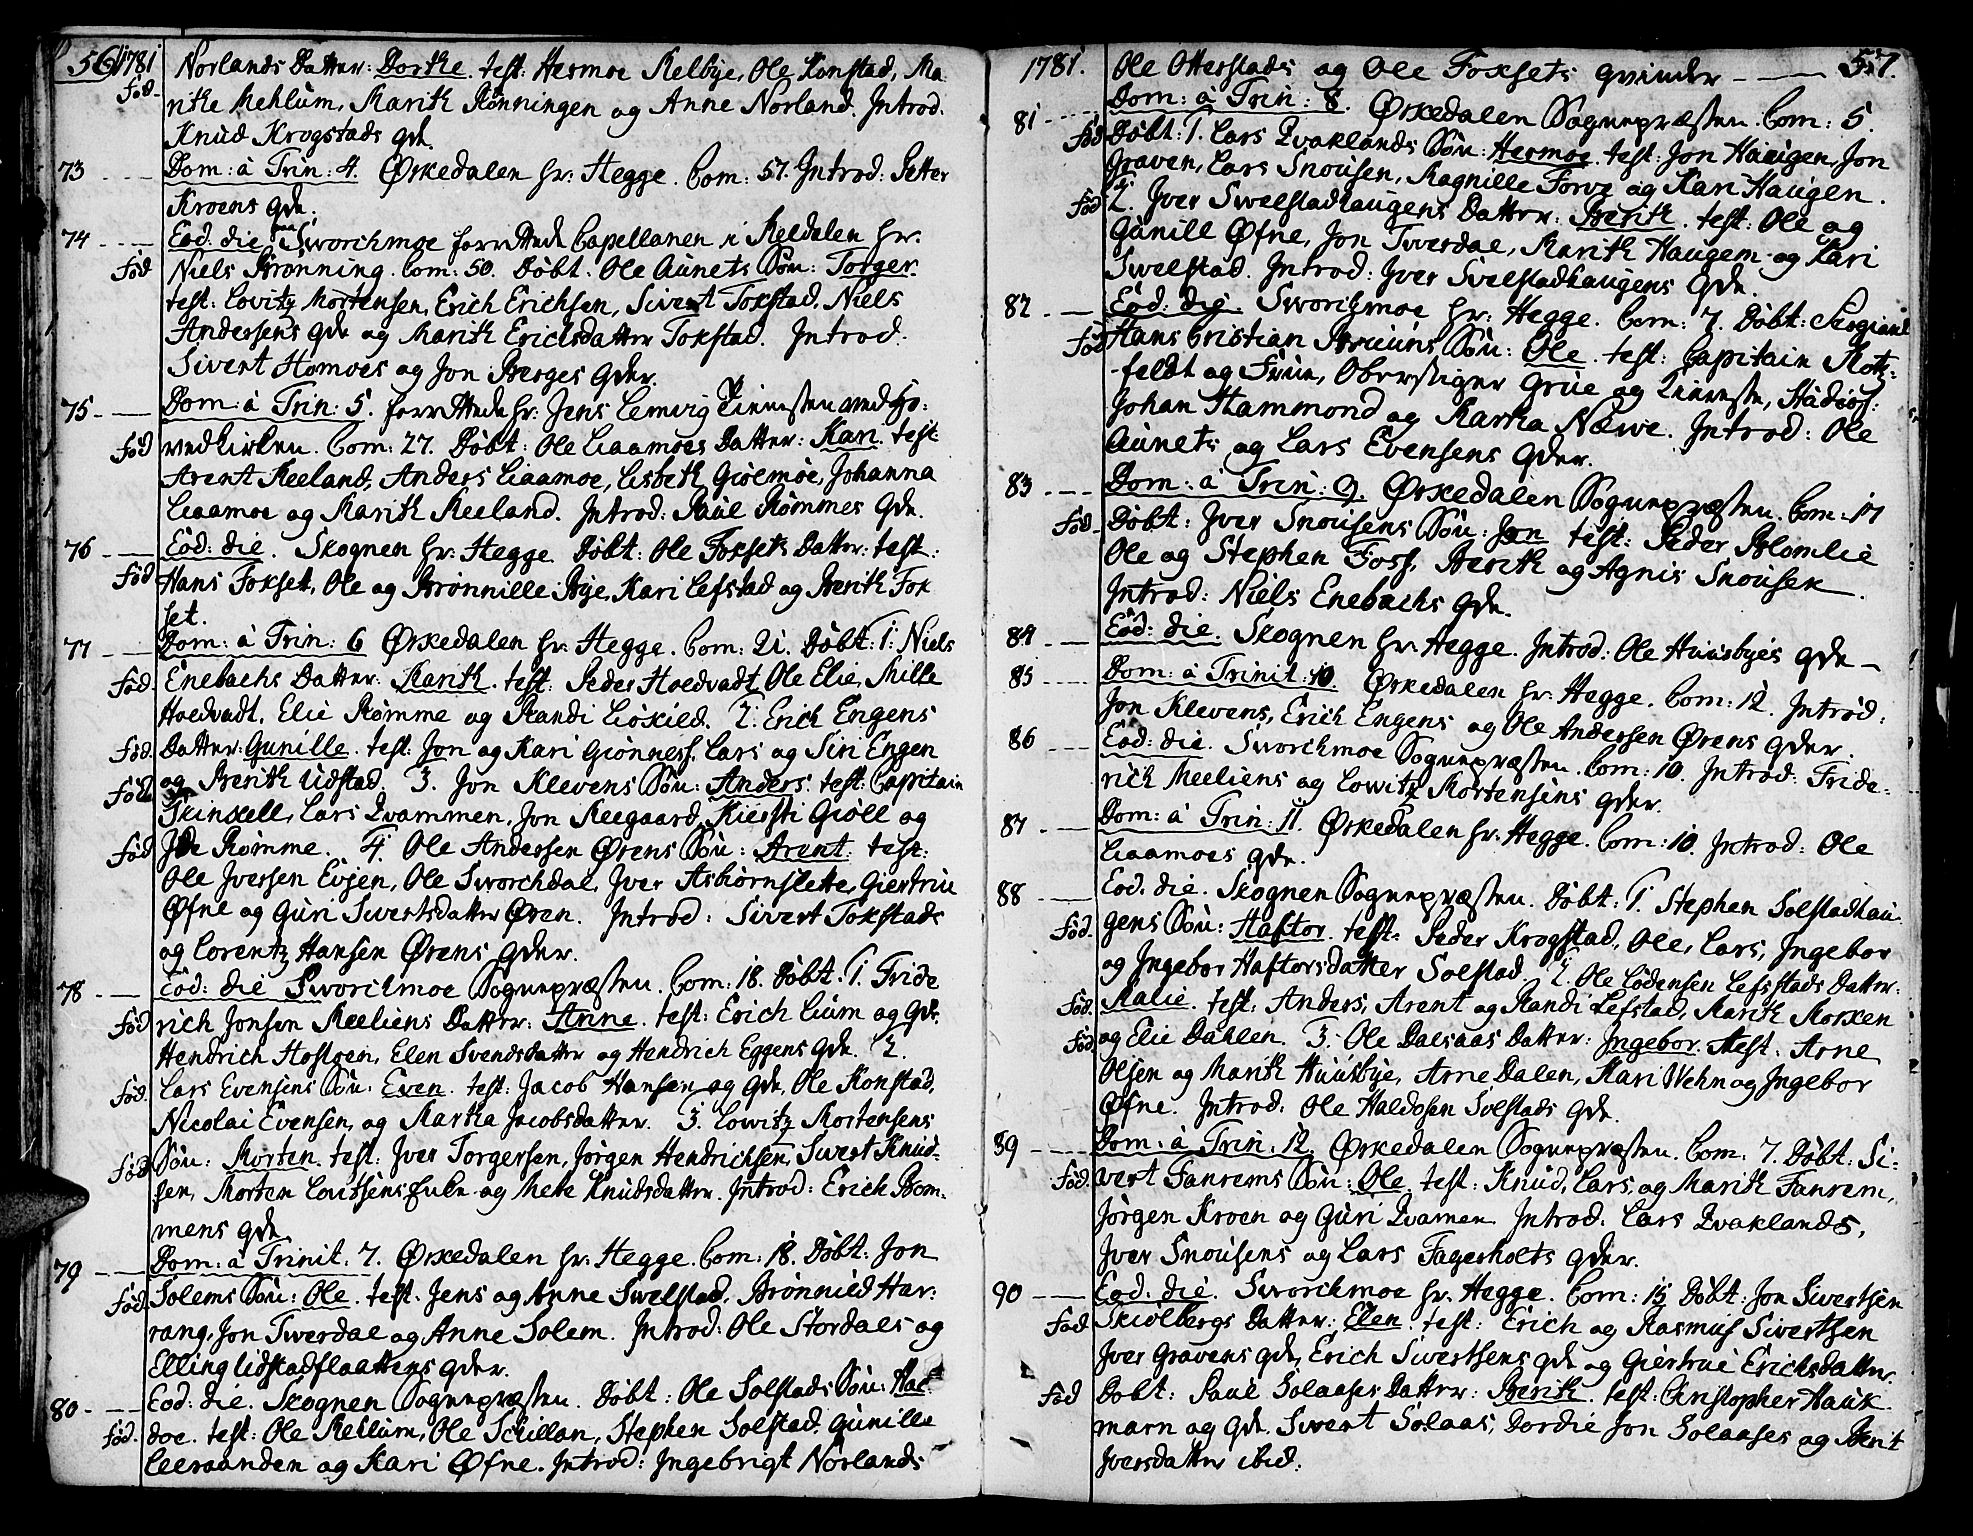 56 1781 Norlands Datter: Dorthe. test: Hermoe Kelbye, Ole Konstad, Ma
Fød. rithe Mehlum, Marith Rønningen og Anne Norland. Introd.
Knud Krogstads qde.
73 Dom: à Trin: 4. Ørkedalen hr: Hegge. Com: 57. Introd: Petter
Kroens qde.
74 Eod: die Sworchmoe forrettede Capellanen i Meldalen hr:
Fød Niels Brønning. Com: 50. Døbt: Ole Aunets Søn: Torger
test: Lovitz Mortensen, Erich Erichsen, Sivert Tokstad, Niels
Andersens qde og Marith Erichsdatter Tokstad. Introd:
Sivert Homoes og Jon Berges qder.
75 Dom: à Trin: 5. forrettede hr: Jens Lemvig ved Ho:
Fød vedkirken. Com: 27. Døbt: Ole Liaamoes Datter: Kari. test:
Arent Meeland, Anders Liaamoe, Lisbeth Giølmoe, Johanna
Liaamoe og Marith Meeland. Introd: Paul Rømmes qde.
76 Eod: die. Skognen hr: Hegge. Døbt: Ole Foksets Datter: test:
Fød Hans Fokset, Ole og Brønnille Bye, Kari Lefstad og Berith Fok
set.
77 Dom: à Trin: 6 Ørkedalen hr: Hegge. Com: 21. Døbt: 1. Niels
Fød. Enebachs Datter: Marith. test: Peder Hoedvadt, Ole Elie, Mille
Hoedvadt, Elie Rømme og Randi Lioskied. 2. Erich Engens
Fød. Datter: Gunille. test: Jon og Kari Giønness, Lars og Siri Engen
Fød og Berith Udstad. 3. Jon Klevens Søn: Anders. test: Capitain
Trinxell, Lars Qvammen, Jon Reegaard, Kiersti Giøll og
Fød Rømme. 4. Ole Andersen Ørens Søn: Arent. test:
Ole Iversen Evjen, Ole Sworchdal, Iver Asbiørnslette, Giertrue
Øfne og Guri Sivertsdatter Øren. Introd: Sivert Tokstads
og Lorentz Hansen Ørens qder.
78 Eod: die Sworchmoe Sognepræsten. Com: 18. Døbt. 1. Fride
Fød rich Jonsen Meeliens Datter: Anne. test: Erich Lium og qde.
Hendrich Hostoen, Elen Svendsdatter og Hendrich Eggens qde. 2.
Fød. Lars Evensens Søn: Even. test: Jacob Hansen og qde, Ole Konstad,
Nicolai Evensen, og Martha Jacobsdatter. 3. Lowitz Mortensens
Fød Søn: Morten. test: Iver Torgersen, Jørgen Hendrichsen, Sivert Knud-
sen, Morten og Mete Knudsdatter. Introd: Erich Bom-
mens qde.
79 Dom: à Trinit. 7. Ørkedalen hr: Hegge. Com: 18. Døbt: Jon
Fød. Solems Søn: Ole. test. Jens og Anne Swelstad, Brønnild Har-
rang. Jon Twerdal og Anne Solem. Introd: Ole Stordals og
Elling Udstadflaattens qder.
80 Eod: die. Skognen Sognepræsten. Døbt: Ole Solstads Søn: Hal-
Fød. doe. test: Ole Mehlum, Ole Schillan, Stephen Solstad, Gunille
Leeraanden og Kari Øfne. Introd: Ingebrigt Norlands
1781. Ole Otterstads og Ole Foksets qvinder 57.
81 Dom: à Trin: 8. Ørkedalen Sognepræsten. Com: 5.
Fød Døbt: 1. Lars Qvaklands Søn: Hermoe. test: Jon Haugen, Jon
Graven, Lars Snousen, Ragnille Forve og Kari Haugen.
Fød 2. Iver Swelstadhaugens Datter: Berith. test: Ole og
Gunill Øfne, Jon Twerdal, Marith Haugen og Kari
Swelstad. Introd: Iver Svelstadhaugens qde.
82 Eod: die. Sworchmoe hr: Hegge. Com: 7. Døbt:
Fød Hans Cristian Bruuns Søn: Ole. test: Capitain Motz-
feldt og Frue, Oberstiger Grue og Hadiøs:
Johan Hammond og Martha Næwe. Introd: Ole
Aunets og Lars Evensens qder.
83 Dom: à Trin: 9. Ørkedalen Sognepræsten. Com: 17
Fød. Døbt: Iver Snousens Søn: Jon test: Peder Blomlie
Ole og Stephen Foss, Berith og Agnis Snousen.
Introd: Niels Enebachs qde.
84 Eod: die. Skognen hr: Hegge. Introd: Ole Huusbyes qde
85 Dom: à Trinit: 10. Ørkedalen hr: Hegge. Com: 12. Introd:
Jon Klevens, Erich Engens og Ole Andersen Ørens qder.
86 Eod: die. Sworchmoe Sognepræsten. Com: 10. Introd: Fride-
rich Meeliens og Lowitz Mortensens qder.
87 Dom: à Trin: 11. Ørkedalen hr: Hegge. Com: 10. Introd: Ole
Liaamoes qde.
88 Eod. die. Skognen Sognepræsten. Døbt: 1. Stephen Solstadhau-
Fød. gens Søn: Haftor. test: Peder Krogstad, Ole, Lars, Ingebor
og Ingebor Haftorsdatter Solstad. 2. Ole Lodensen Lefstads Datter:
Fød. Malie. test: Anders, Arent og Randi Lefstad, Marith Morken
Fød og Elie Dahlen. 3. Ole Dalsaas Datter: Ingebor. test: Arne
Olsen og Marith Huusbye, Arne Dalen, Kari Wehn og Ingebor
Øfne. Introd: Ole Haldosen Solstads qde.
89 Dom: à Trin: 12. Ørkedalen Sognepræsten. Com: 7. Døbt: Si-
Fød. vert Fanrems Søn: Ole. test: Knud, Lars, og Marith Fanrem,
Jørgen Kroen og Guri Qvamen. Introd: Lars Qvaklands,
Iver Snousens og Lars Fagerholts qder.
90 Eod: die. Sworchmoe hr: Hegge. Com: 15 Døbt: Jon Sivertsen
Fød Skiølbergs Datter: Elen. test: Erich og Rasmus Sivertsen
Iver Gravens qde, Erich Sivertsens qde og Giertrue Erichsdatter.
Fød Døbt: Paul Solaases Datter: Berith. test: Christopher Hauk-
marn og qde. Sivert Solaas, Dordie Jon Solaases og Berit
Iversdatter ibid: